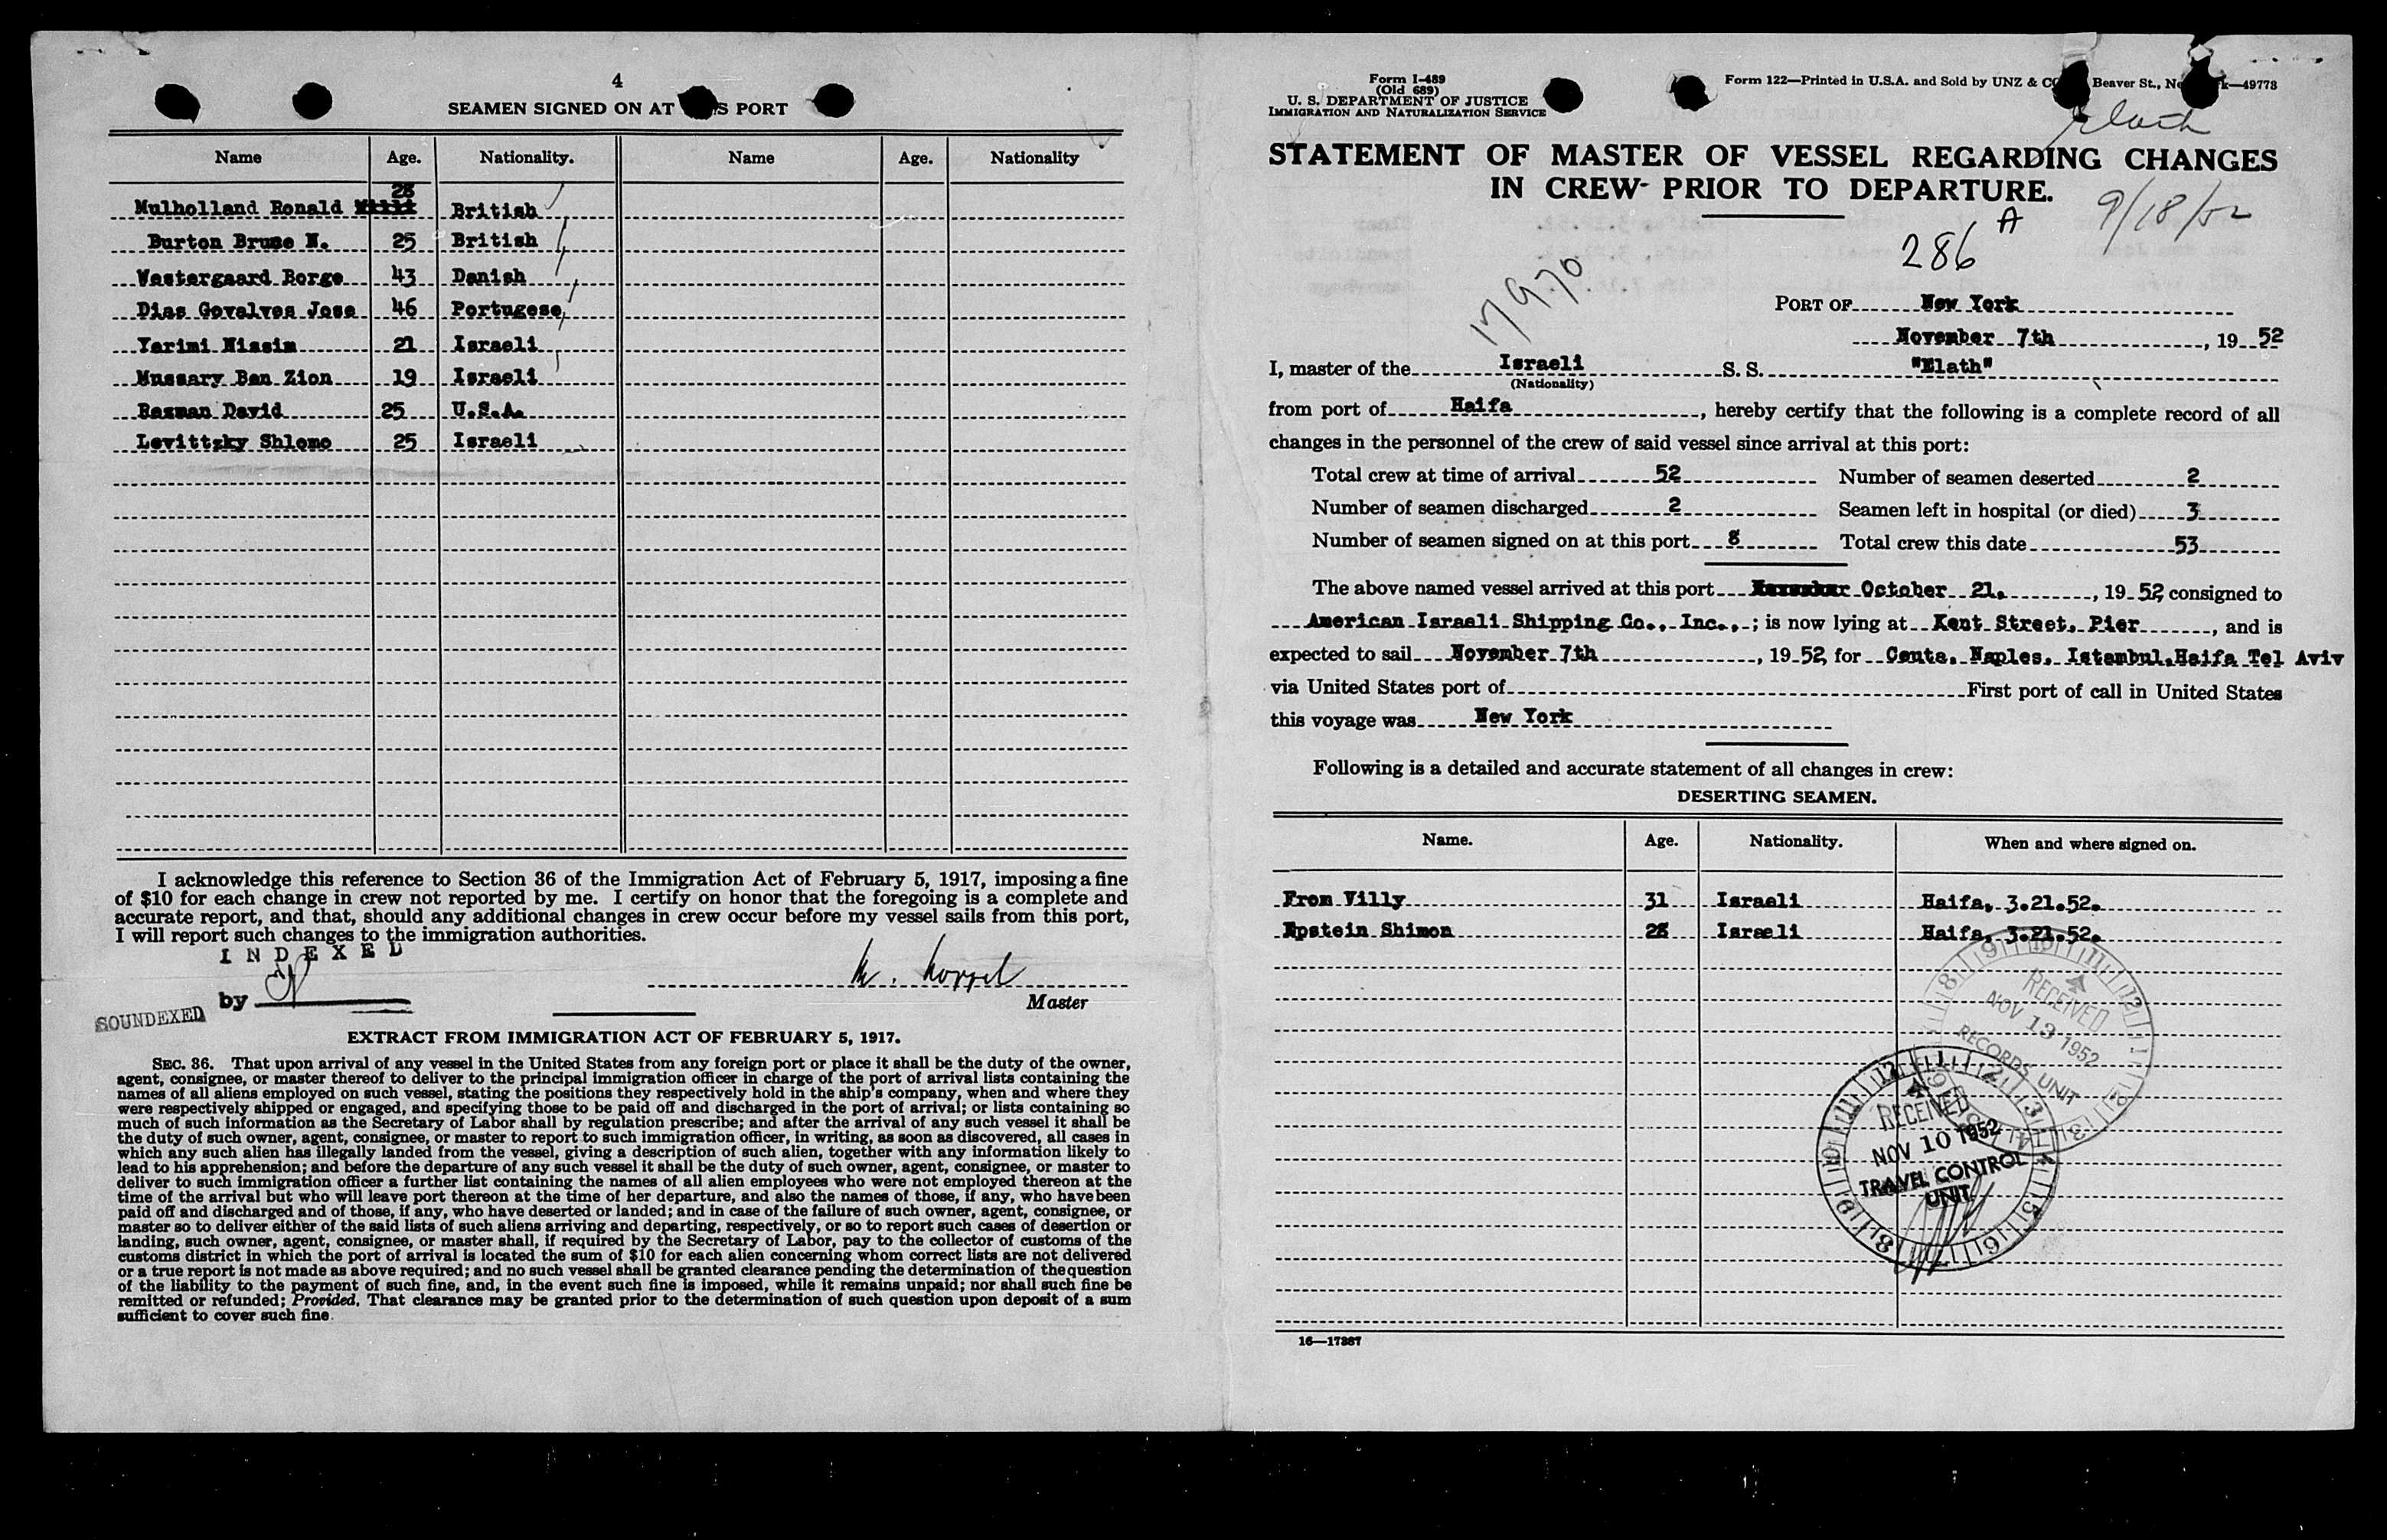 4
SEAMEN SIGNED ON AT S PORT
Name Age. Nationality. Name Age. Nationality
28
Mulholland Ronald British
Burton Bruce N. 25 British
Westergaard Borge 43 Danish
Dias Govalves Jose 46 Portugese
Yarimi Nissim 21 Israeli
Mussary Ben Zion 19 Israeli
Razman David 25 U.S.A.
Levittzky Shlomo 25 Israeli
I acknowledge this reference to Section 36 of the Immigration Act of February 5, 1917, imposing a fine
of $10 for each change in crew not reported by me. I certify on honor that the foregoing is a complete and
accurate report, and that, should any additional changes in crew occur before my vessel sails from this port,
I will report such changes to the immigration authorities.
INDEXED
by
SOUNDEXED
Master
EXTRACT FROM IMMIGRATION ACT OF FEBRUARY 5, 1917.
SEC. 36. That upon arrival of any vessel in the United States from any foreign port or place it shall be the duty of the owner,
agent, consignee, or master thereof to deliver to the principal immigration officer in charge of the port of arrival lists containing the
names of all aliens employed on such vessel, stating the positions they respectively hold in the ship's company, when and where they
were respectively shipped or engaged, and specifying those to be paid off and discharged in the port of arrival; or lists containing so
much of such information as the Secretary of Labor shall by regulation prescribe; and after the arrival of any such vessel it shall be
the duty of such owner, agent, consignee, or master to report to such immigration officer, in writing, as soon as discovered, all cases in
which any such alien has illegally landed from the vessel, giving a description of such alien, together with any information likely to
lead to his apprehension; and before the departure of any such vessel it shall be the duty of such owner, agent, consignee, or master to
deliver to such immigration officer a further list containing the names of all alien employees who were not employed thereon at the
time of the arrival but who will leave port thereon at the time of her departure, and also the names of those, if any, who have been
paid off and discharged and of those, if any, who have deserted or landed; and in case of the failure of such owner, agent, consignee, or
master so to deliver either of the said lists of such aliens arriving and departing, respectively, or so to report such cases of desertion or
landing, such owner, agent, consignee, or master shall, if required by the Secretary of Labor, pay to the collector of customs of the
customs district in which the port of arrival is located the sum of $10 for each alien concerning whom correct lists are not delivered
or a true report is not made as above required; and no such vessel shall be granted clearance pending the determination of the question
of the liability to the payment of such fine, and, in the event such fine is imposed, while it remains unpaid; nor shall such fine be
remitted or refunded; Provided, That clearance may be granted prior to the determination of such question upon deposit of a sum
sufficient to cover such fine.
Form I-489
(Old 689)
U. S. DEPARTMENT OF JUSTICE
IMMIGRATION AND NATURALIZATION SERVICE
Form 122—Printed in U.S.A. and Sold by UNZ & CO Beaver St., Ne k—49778
Elath
STATEMENT OF MASTER OF VESSEL REGARDING CHANGES
IN CREW PRIOR TO DEPARTURE.
9/18/52
286 A
17970
PORT OF New York
November 7th, 19 52
I, master of the Israeli S. S. "Elath"
(Nationality)
from port of Haifa, hereby certify that the following is a complete record of all
changes in the personnel of the crew of said vessel since arrival at this port:
Total crew at time of arrival 52 Number of seamen deserted 2
Number of seamen discharged 2 Seamen left in hospital (or died) 3
Number of seamen signed on at this port 8 Total crew this date 53
The above named vessel arrived at this port October 21, 19 52, consigned to
American Israeli Shipping Co., Inc., ; is now lying at Kent Street, Pier, and is
expected to sail November 7th, 19 52, for Ceuta, Naples, Istambul, Haifa Tel Aviv
via United States port of First port of call in United States
this voyage was New York
Following is a detailed and accurate statement of all changes in crew:
DESERTING SEAMEN.
Name. Age. Nationality. When and where signed on.
From Villy 31 Israeli Haifa, 3.21.52.
Epstein Shimon 28 Israeli Haifa, 3.21.52.
RECEIVED
NOV 13 1952
RECORDS UNIT
RECEIVED
NOV 10 1952
TRAVEL CONTROL
UNIT
16—17387